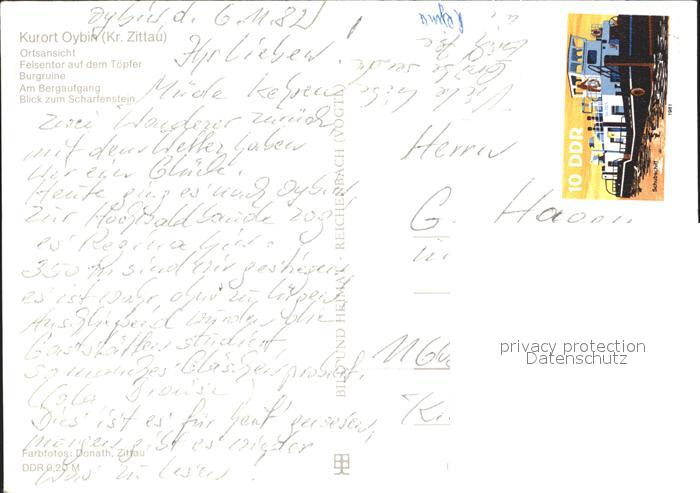 Oybin d. 6.11.82
Kurort Oybin (Kr. Zittau)
Ortsansicht
Felsentor auf dem Töpfer
Burgruine
Am Bergaufgang
Blick zum Scharfenstein
Ihr Lieben.
Müde kehren
zwei Wanderer zurück
mit dem Wetter haben
wir ein Glück.
Heute ging es nach Oybin
zur Hochwaldbaude zog
es Regina hin.
350 m sind wir gestiegen,
es ist wahr, ohne zu lügen.
Anschließend wurden die
Gaststätten studiert
so manches Gläschen probiert.
Dies ist es für heut' gewesen,
morgen gibt es wieder
was zu lesen.
Farbfotos: Donath, Zittau
DDR 0,20 M
BILD UND HEIMAT · REICHENBACH (VOGTL)
Regina
Viele liebe
Grüße sendet
Herrn
G.
in
10 DDR
Schubschiff
1981
privacy protection
Datenschutz